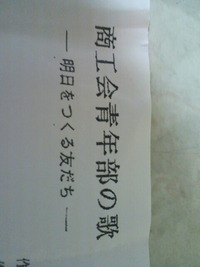 商工会青年部の歌
― 明日をつくる友だち ―
作